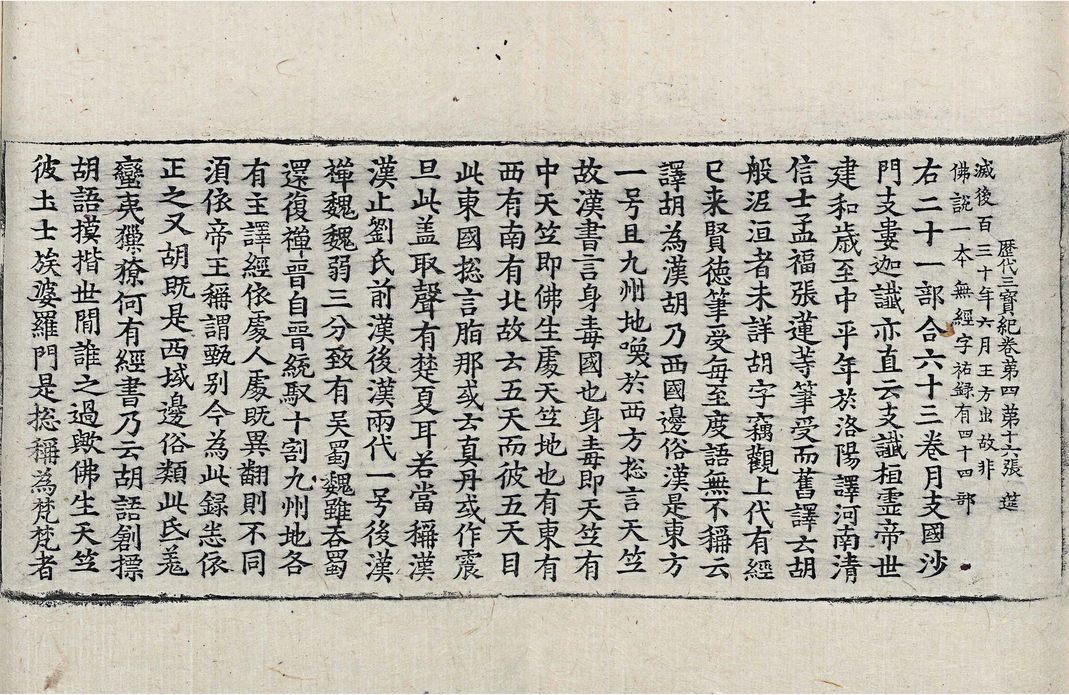 歷代三寶紀卷第四第十六張 筵
滅後百三十年六月王方出故非
佛說一本無經字祐録有四十四部
右二十一部合六十三卷月支國沙
門支婁迦讖亦直云支讖桓霊帝世
建和歳至中平年於洛陽譯河南清
信士孟福張蓮等筆受而舊譯云胡
般泥洹者未詳胡字竊觀上代有經
已来賢徳筆受每至度語無不稱云
譯胡為漢胡乃西國邊俗漢是東方
一号且九州地喚於西方惣言天竺
故漢書言身毒國也身毒即天竺有
中天竺即佛生處天竺地也有東有
西有南有北故云五天而彼五天目
此東國惣言脂那或云真丹或作震
旦此盖取聲有楚夏耳若當稱漢
漢止劉氏前漢後漢兩代一号後漢
禪魏魏弱三分致有吴蜀魏雖吞蜀
還復禪晉自晉統馭十割九州地各
有主譯經依處人處既異翻則不同
須依帝王稱謂甄別今為此録悉依
正之又胡既是西域邊俗類此氐羌
蠻夷獯獠何有經書乃云胡語創標
胡語摸揩世間誰之過歟佛生天竺
彼土士族婆羅門是惣稱為梵梵者